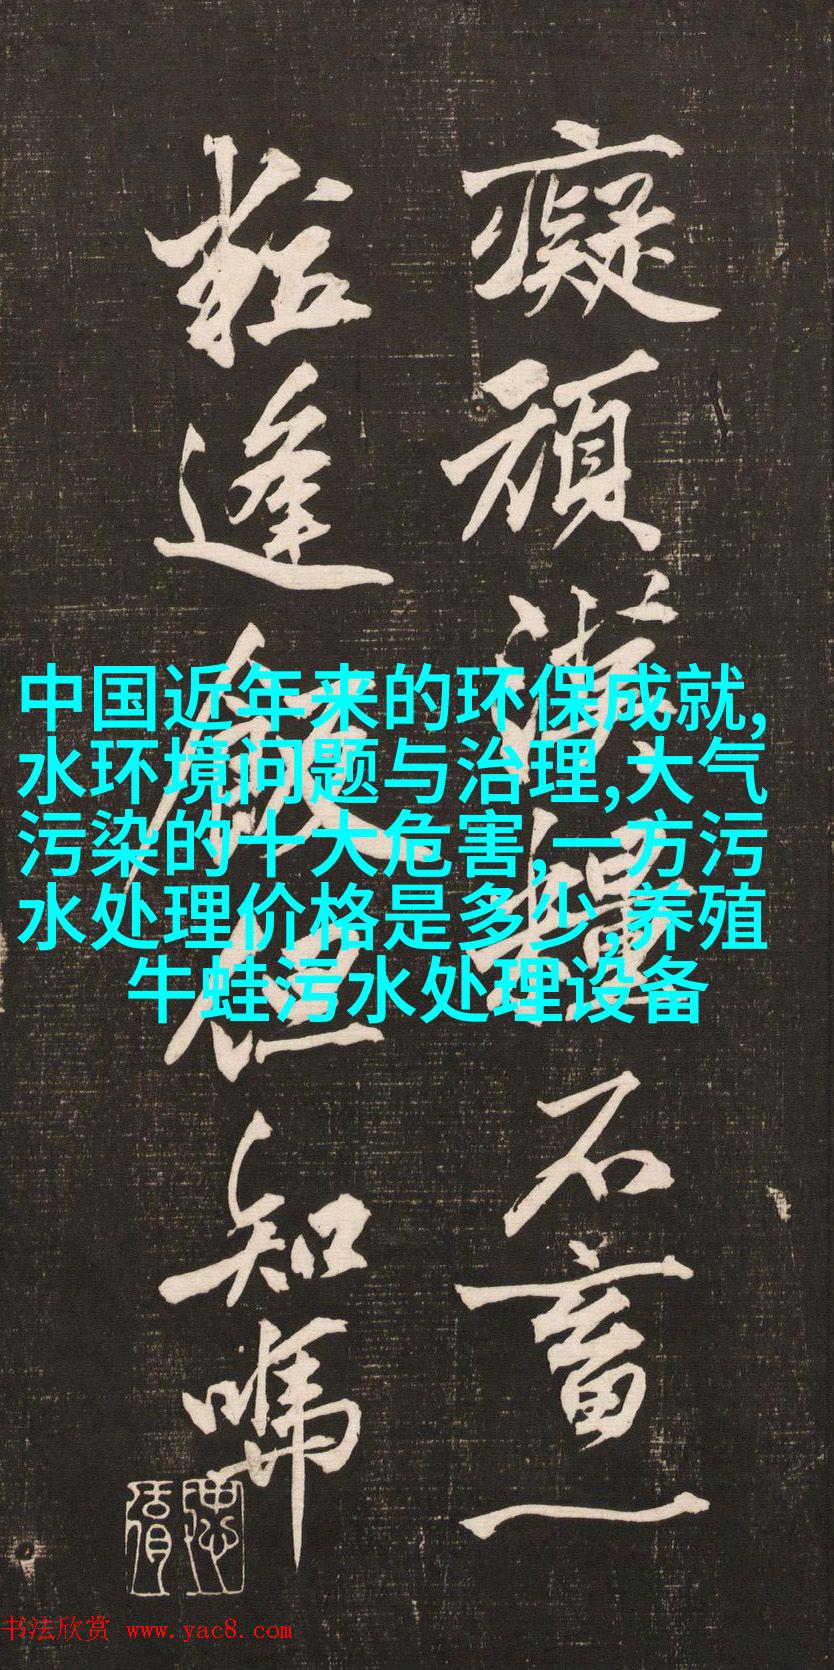 癡頑漢糧不畜一
粒逢飯但知噇
中国近年来的环保成就,
水环境问题与治理,大气
污染的十大危害,一方污
水处理价格是多少,养殖
牛蛙污水处理设备
书法欣赏 www.yac8.com